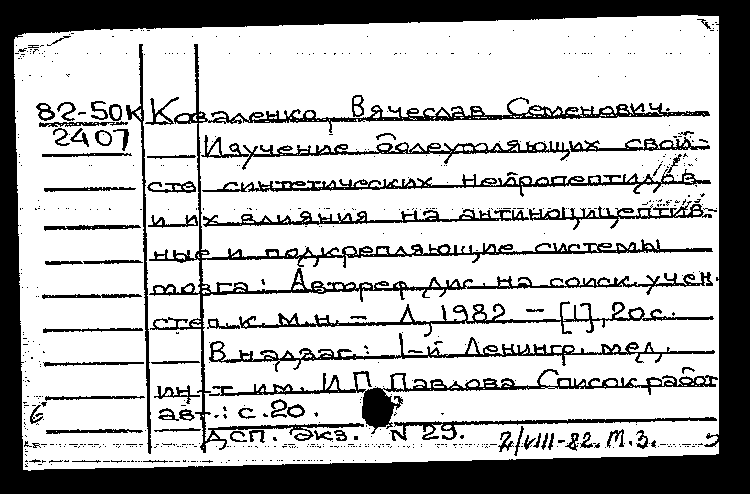 82-50К Коваленко, Вячеслав Семенович.
2407
Изучение болеутоляющих свой-
ств синтетических нейропептидов
и их влияния на антиноцицептив-
ные и подкрепляющие системы
мозга: Автореф. дис. на соиск. учен.
степ. к. м. н. – Л, 1982 – [1], 20 с.
В надзаг.: 1-й Ленингр. мед.
ин-т им. И П Павлова Список работ
авт.: с. 20.
6
ДСП. Экз. N 29. 2/VIII-82. М. З.